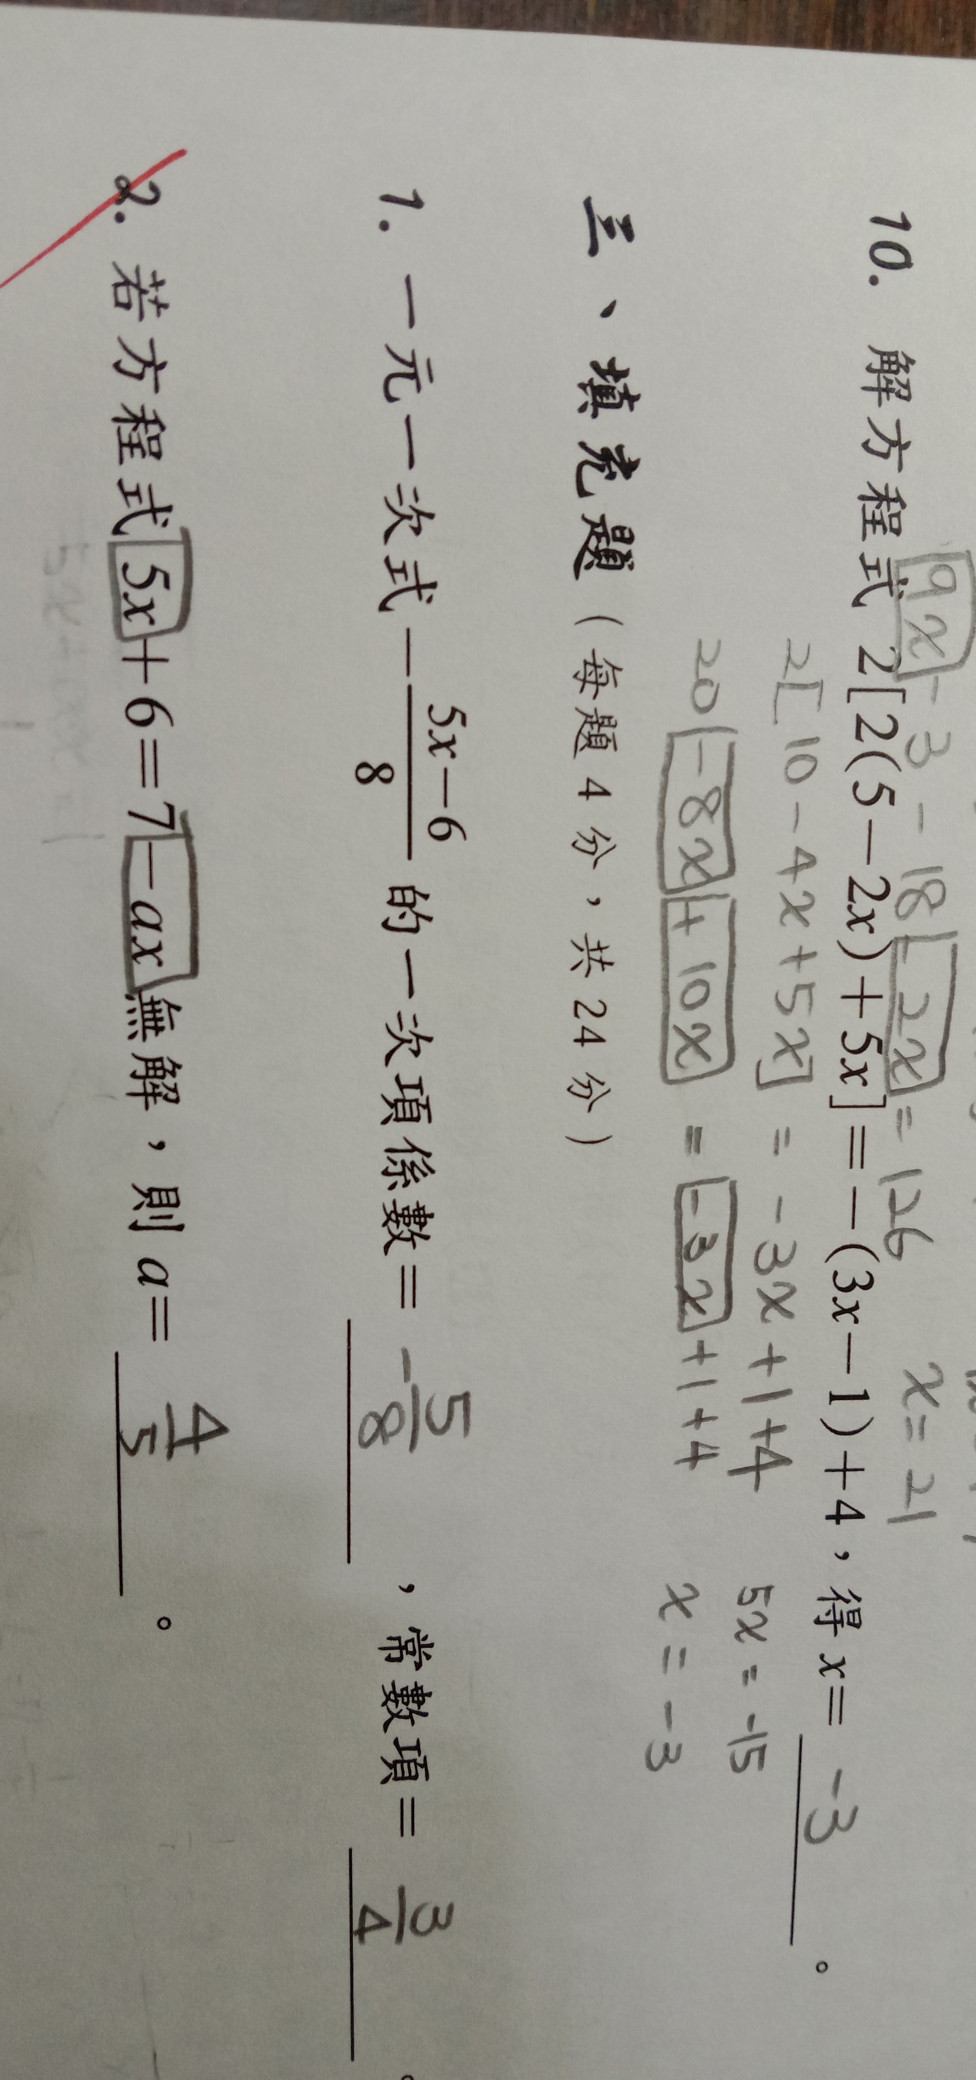 9x - 3 - 18 - 2x = 126 x = 21
10. 解方程式 2[2(5-2x)+5x]=-(3x-1)+4，得 x= -3 。
2[10-4x+5x] = -3x+1+4 5x = -15
20 -8x +10x = -3x +1+4 x = -3
三、填充題（每題 4 分，共 24 分）
1. 一元一次式 -\frac{5x-6}{8} 的一次項係數= -\frac{5}{8} ，常數項= \frac{3}{4} 。
2. 若方程式 5x+6=7-ax 無解，則 a= \frac{4}{5} 。